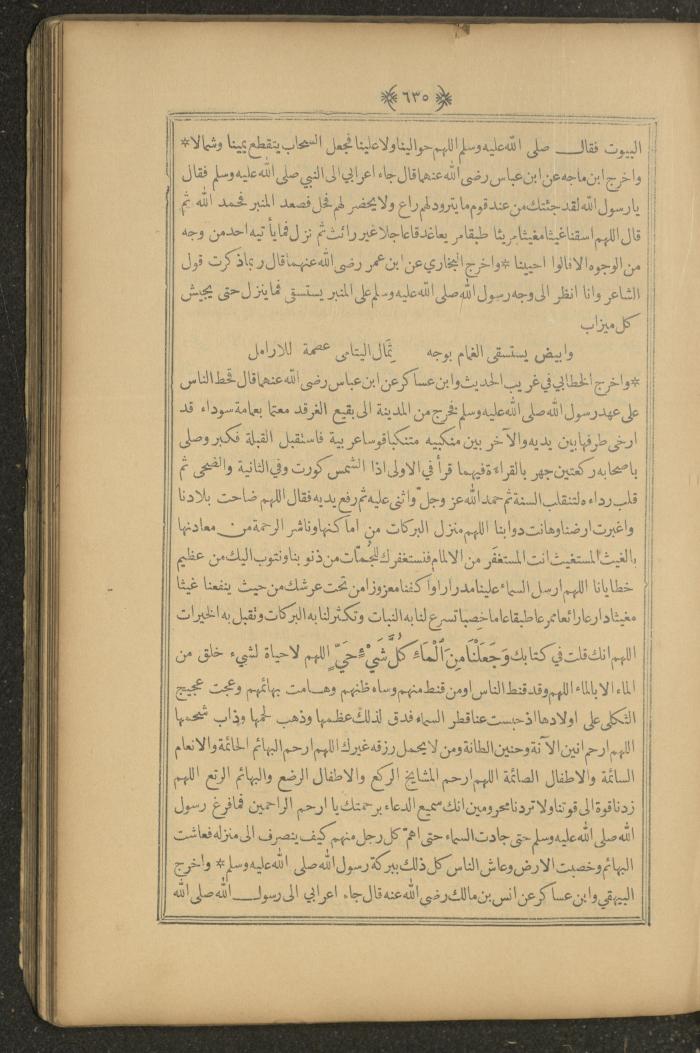 ٦٣٥
البيوت فقال صلى الله عليه وسلم اللهم حوالينا ولا علينا فجعل السحاب يتقطع يمينا وشمالا *
واخرج ابن ماجه عن ابن عباس رضى الله عنهما قال جاء اعرابي الى النبي صلى الله عليه وسلم فقال
يا رسول الله لقد جئتك من عند قوم ما يتزود لهم راع ولا يخضر لهم فحل فصعد المنبر فحمد الله ثم
قال اللهم اسقنا غيثا مغيثا مريئا طبقا مريعا غدقا عاجلا غير رائث ثم نزل فما يأتيه احد من وجه
من الوجوه الا قالوا احيينا * واخرج البخاري عن ابن عمر رضى الله عنهما قال ربما ذكرت قول
الشاعر وانا انظر الى وجه رسول الله صلى الله عليه وسلم على المنبر يستسقى فما ينزل حتى يجيش
كل ميزاب
وابيض يستسقى الغمام بوجهه ثمال اليتامى عصمة للارامل
* واخرج الخطابي في غريب الحديث وابن عساكر عن ابن عباس رضى الله عنهما قال قحط الناس
على عهد رسول الله صلى الله عليه وسلم فخرج من المدينة الى بقيع الغرقد معتما بعمامة سوداء قد
ارخى طرفها بين يديه والآخر بين منكبيه متنكبا قوسا عربية فاستقبل القبلة فكبر وصلى
باصحابه ركعتين جهر بالقراءة فيهما قرأ في الاولى اذا الشمس كورت وفي الثانية والضحى ثم
قلب رداءه لتنقلب السنة ثم حمد الله عز وجل واثنى عليه ثم رفع يديه فقال اللهم ضاحت بلادنا
واغبرت ارضنا وهانت دوابنا اللهم منزل البركات من اماكنها وناشر الرحمة من معادنها
بالغيث المستغيث انت المستغفر من الالمام فنستغفرك للجمات من ذنوبنا ونتوب اليك من عظيم
خطايانا اللهم ارسل السماء علينا مدرارا واكفنا مغزوزا من تحت عرشك من حيث ينفعنا غيثا
مغيثا دارعا رائعا ممرعا طبقا عاما خصبا تسرع لنا به النبات وتكثر لنا به البركات وتقبل به الخيرات
اللهم انك قلت في كتابك وَجَعَلْنَا مِنَ ٱلْمَاءِ كُلَّ شَيْءٍ حَيٍّ اللهم لا حياة لشيء خلق من
الماء الا بالماء اللهم وقد قنط الناس او من قنط منهم وساء ظنهم وهامت بهائمهم وعجت عجيج
الثكلى على اولادها اذ حبست عنا قطر السماء فدق لذلك عظمها وذهب لحمها وذاب شحمها
اللهم ارحم انين الآنة وحنين الحانة ومن لا يحمل رزقه غيرك اللهم ارحم البهائم الحائمة والانعام
السائمة والاطفال الصائمة اللهم ارحم المشايخ الركع والاطفال الرضع والبهائم الرتع اللهم
زدنا قوة الى قوتنا ولا تردنا محرومين انك سميع الدعاء برحمتك يا ارحم الراحمين فما فرغ رسول
الله صلى الله عليه وسلم حتى جادت السماء حتى اهمّ كل رجل منهم كيف ينصرف الى منزله فعاشت
البهائم وخصبت الارض وعاش الناس كل ذلك ببركة رسول الله صلى الله عليه وسلم * واخرج
البيهقي وابن عساكر عن انس بن مالك رضى الله عنه قال جاء اعرابي الى رسول الله صلى الله